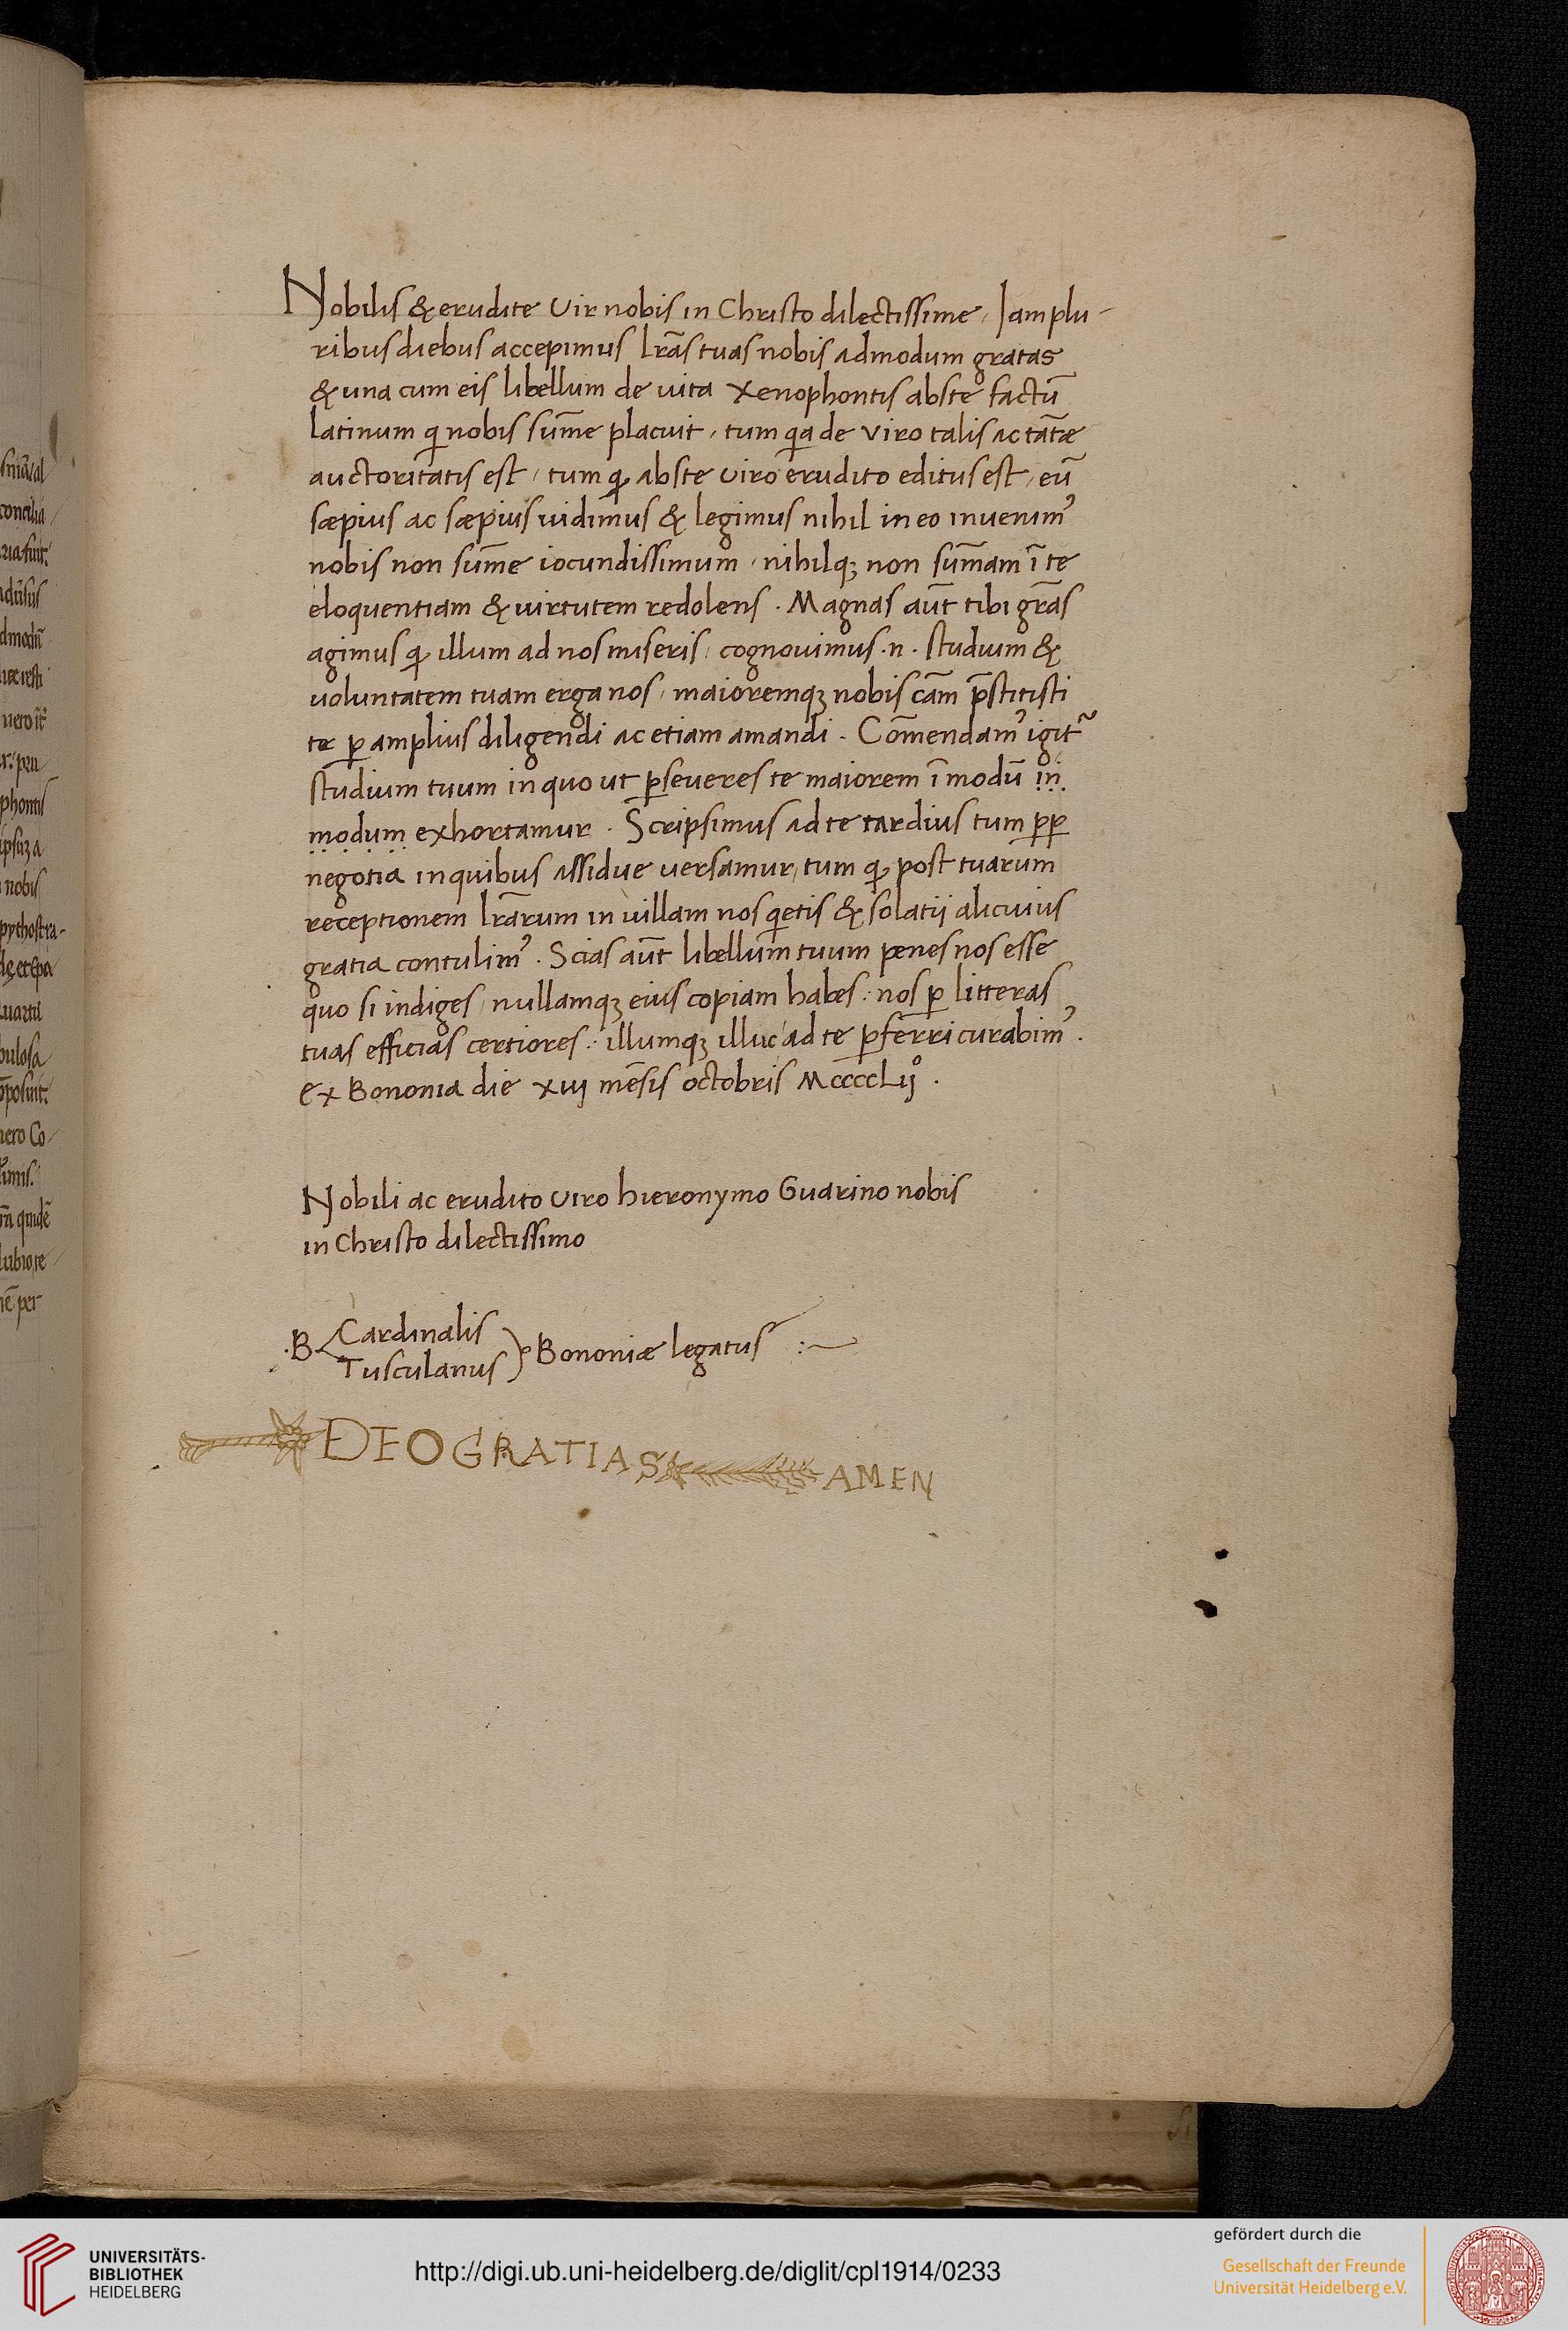 Nobilis & erudite Vir nobis in Christo dilectissime, Iam plu-
ribus diebus accepimus lr̃as tuas nobis admodum gratas
& una cum eis libellum de vita Xenophontis abste factũ
latinum q nobis sum̃e placuit, tum qa de viro talis ac tãtæ
auctoritatis est, tum q abste viro erudito editus est, eũ
sæpius ac sæpius vidimus & legimus nihil in eo invenim᾽
nobis non sum̃e iocundissimum, nihilqꝫ non sum̃am ĩ te
eloquentiam & virtutem redolens. Magnas aũt tibi gr̃as
agimus q illum ad nos miseris, cognovimus .n. studium &
voluntatem tuam erga nos, maioremqꝫ nobis cãm p̃stitisti
te ꝑ amplius diligendi ac etiam amandi. Com̃endam᾽ igit̃
studium tuum in quo ut ꝑseveres te maiorem ĩ modũ in
modum exhortamur. Scripsimus ad te tardius tum ꝓꝑ
negotia in quibus assidue versamur, tum q post tuarum
receptionem lr̃arum in villam nos qetis & solatij alicuius
gratia contulim᾽. Scias aũt libellum tuum penes nos esse
quo si indiges, nullamqꝫ eius copiam habes: nos ꝑ litteras
tuas efficias certiores: illumqꝫ illuc ad te ꝑferri curabim᾽.
Ex Bononia die xiij mẽsis octobris MccccLijº.
Nobili ac erudito viro hieronymo Guarino nobis
in Christo dilectissimo
.B. Cardinalis
Tusculanus Bononiæ legatus :~
DEO GRATIAS AMEN
UNIVERSITÄTS-
BIBLIOTHEK
HEIDELBERG
http://digi.ub.uni-heidelberg.de/diglit/cpl1914/0233
gefördert durch die
Gesellschaft der Freunde
Universität Heidelberg e.V.